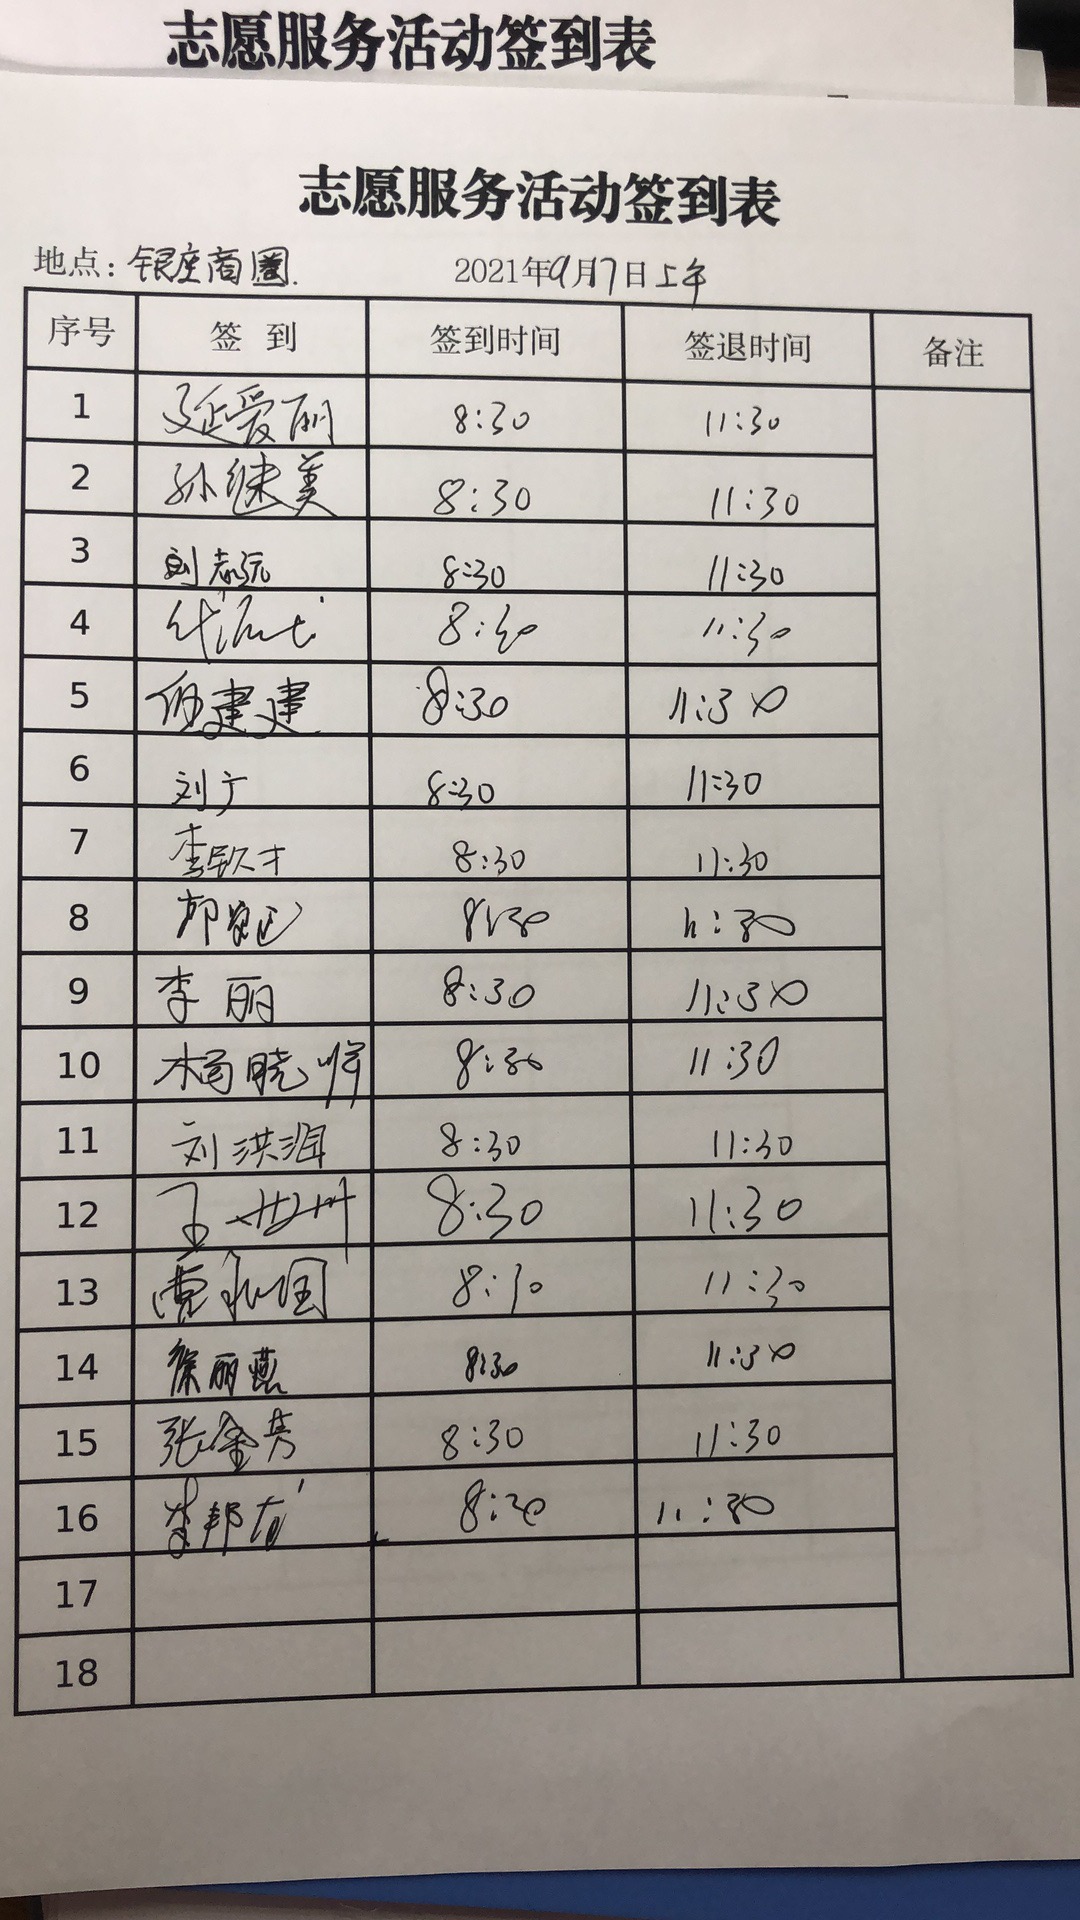 志愿服务活动签到表
志愿服务活动签到表
地点：银座商圈. 2021年9月7日上午
序号 签 到 签到时间 签退时间 备注
1 延爱丽 8:30 11:30
2 孙继美 8:30 11:30
3 刘志远 8:30 11:30
4 8:30 11:30
5 建建 8:30 11:30
6 刘广 8:30 11:30
7 李钦才 8:30 11:30
8 8:30 11:30
9 李丽 8:30 11:30
10 杨晓 8:30 11:30
11 刘洪润 8:30 11:30
12 王 8:30 11:30
13 8:30 11:30
14 徐丽燕 8:30 11:30
15 张金芳 8:30 11:30
16 李邦 8:30 11:30
17
18